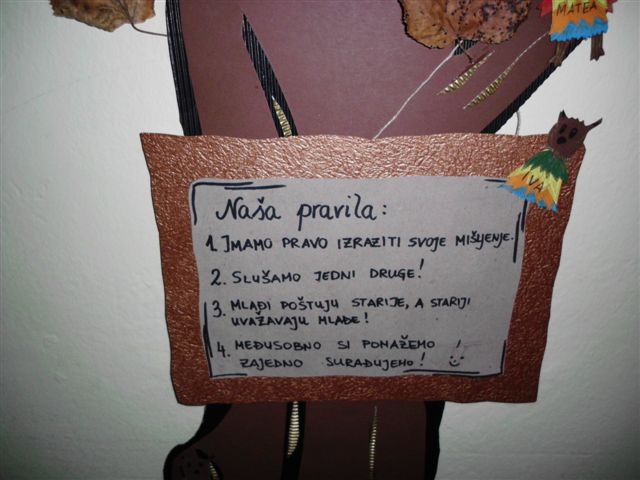 MATEA
IVA
Naša pravila:
1. IMAMO PRAVO IZRAZITI SVOJE MIŠLJENJE.
2. SLUŠAMO JEDNI DRUGE!
3. MLAĐI POŠTUJU STARIJE, A STARIJI
UVAŽAVAJU MLAĐE!
4. MEĐUSOBNO SI POMAŽEMO
ZAJEDNO SURAĐUJEMO!